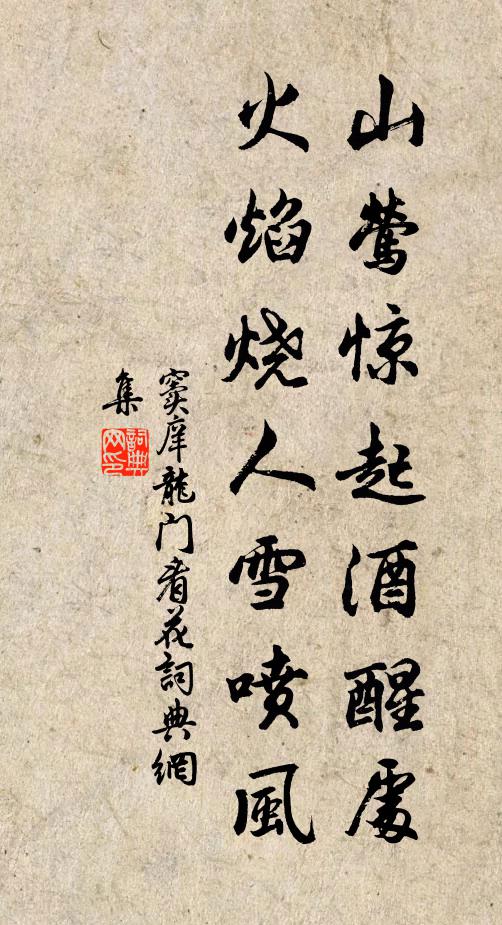 山莺惊起酒醒處
火焰烧人雪喷風
窦庠龍门看花詞典網
集
詞典
网印